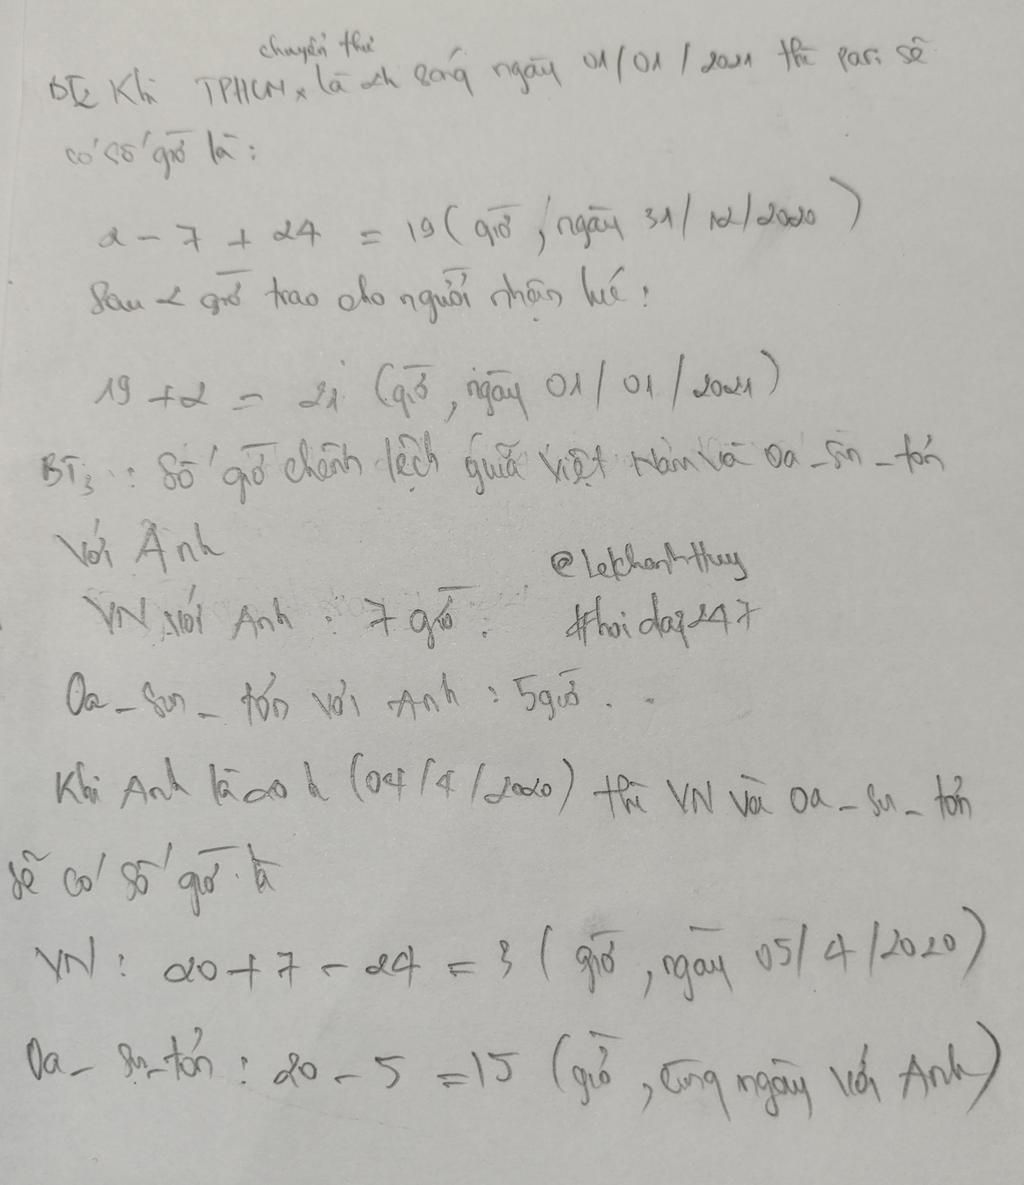 chuyển thư
BT2 Khi TPHCM x là 2h sáng ngày 01/01/2021 thì pari sẽ
có số giờ là:
2 - 7 + 24 = 19 ( giờ, ngày 31/12/2020 )
Sau 2 giờ trao cho người nhận lúc:
19 + 2 = 21 (giờ, ngày 01/01/2021)
BT3 : Số giờ chênh lệch giữa Việt Nam và Oa-sin-tơn
Với Anh
@LeKhanhHuy
VN với Anh : 7 giờ.
#hoidap247
Oa-sin-tơn với Anh : 5 giờ.
Khi Anh là 20 h (04/4/2020) thì VN và Oa-sin-tơn
sẽ có số giờ là
VN : 20 + 7 - 24 = 3 ( giờ, ngày 05/4/2020)
Oa-sin-tơn : 20 - 5 = 15 (giờ, cùng ngày với Anh)